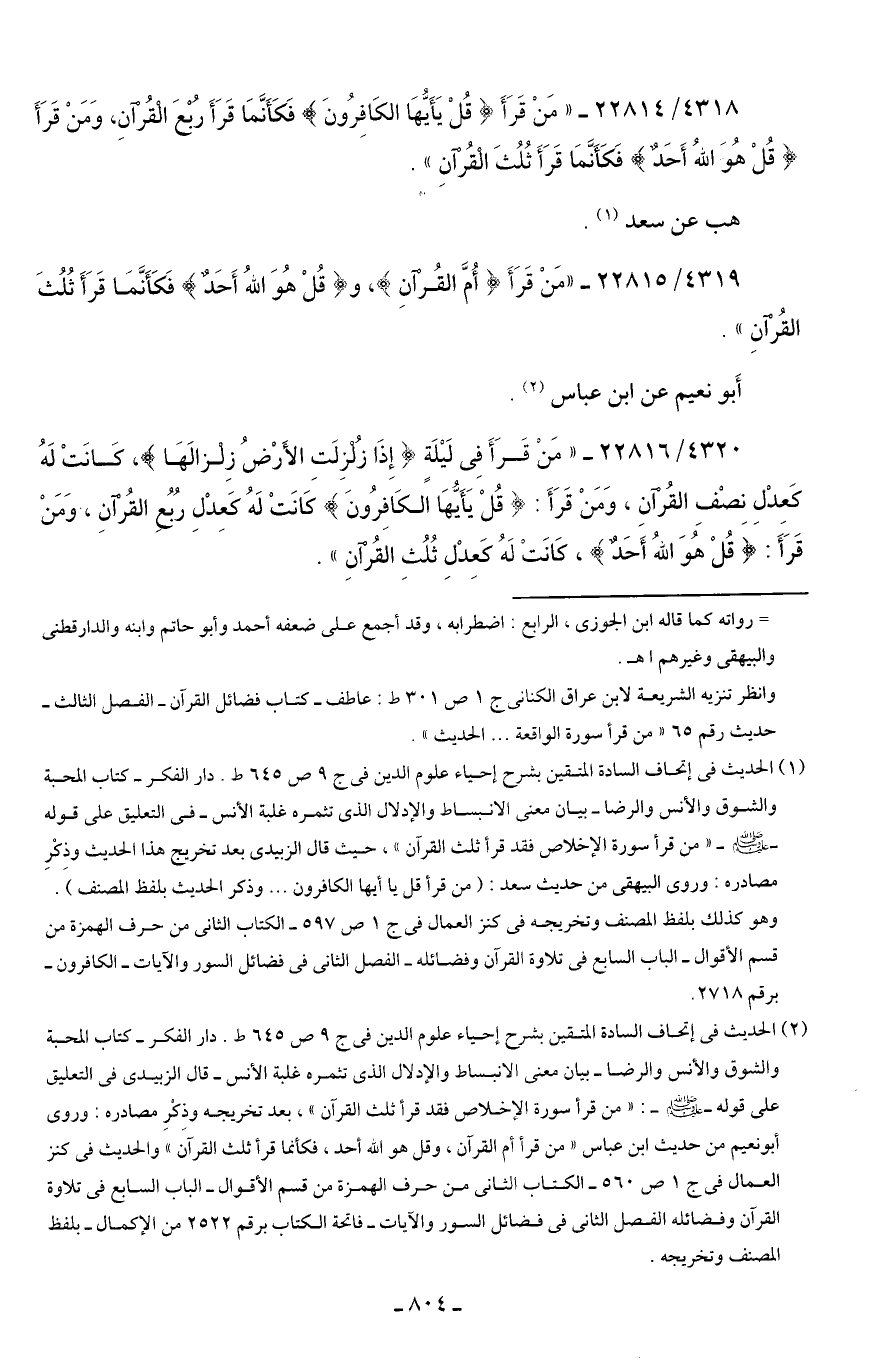 ٤٣١٨/ ٢٢٨١٤ ـ « مَنْ قَرَأَ ﴿ قُلْ يَأَيُّهَا الكَافِرُونَ ﴾ فَكَأَنَّمَا قَرَأَ رُبُعَ الْقُرْآنِ، وَمَنْ قَرَأَ
﴿ قُلْ هُوَ اللهُ أَحَدٌ ﴾ فَكَأَنَّمَا قَرَأَ ثُلُثَ الْقُرْآنِ » .
هب عن سعد (١) .
٤٣١٩/ ٢٢٨١٥ ـ «مَنْ قَرَأَ ﴿ أُمَّ القُـرآنِ ﴾، و﴿ قُلْ هُوَ اللهُ أَحَدٌ ﴾ فَكَأَنَّمَـا قَرَأَ ثُلُثَ
القُرْآنِ » .
أَبو نعيم عن ابن عباس (٢) .
٤٣٢٠/ ٢٢٨١٦ ـ « مَنْ قَـــرَأَ فِى لَيْلَةٍ ﴿ إِذَا زُلْزِلَتِ الأَرْضُ زِلْـزالَهَا ﴾، كَـــانَتْ لَهُ
كَعِدْلِ نِصْفِ القُرآنِ ، وَمَنْ قَرَأَ : ﴿ قُلْ يَأَيُّهَا الـكَافِرُونَ ﴾ كَانَتْ لَهُ كَعِدْلِ رُبُعِ القُرآنِ ، وَمَنْ
قَرَأَ : ﴿ قُلْ هُوَ اللهُ أَحَدٌ ﴾ ، كَانَتْ لَهُ كَعِدْلِ ثُلُثِ القُرْآنِ » .
= رواته كما قاله ابن الجوزى ، الرابع : اضطرابه ، وقد أجمع عـلى ضعفه أحمد وأبو حاتم وابنه والدارقطنى
والبيهقى وغيرهم ا هـ .
وانظر تنزيه الشريعة لابن عراق الكنانى ج ١ ص ٣٠١ ط : عاطف ـ كتـاب فضائل القرآن ـ الفـصل الثالث ـ
حديث رقم ٦٥ « من قرأ سورة الواقعة ... الحديث » .
(١) الحديث فى إتحاف السادة المتـقين بشرح إحياء علوم الدين فى ج ٩ ص ٦٤٥ ط . دار الفكر ـ كتاب المحبة
والشوق والأنس والرضا ـ بيـان معنى الانبـساط والإدلال الذى تثمـره غلبة الأنس ـ فـى التعليق على قـوله
ـ ﷺ ـ « من قرأ سورة الإخلاص فقد قرأ ثلث القرآن » ، حيث قال الزبيدى بعد تخريج هذا الحديث وذِكْرِ
مصادره : وروى البيهقى من حديث سعد : ( من قرأ قل يا أيها الكافرون ... وذكر الحديث بلفظ المصنف ) .
وهو كذلك بلفظ المصنف وتخريجـه فى كنز العمال فى ج ١ ص ٥٩٧ ـ الكتاب الثانى من حـرف الهمزة من
قسم الأقوال ـ الباب السابع فى تلاوة القرآن وفضـائله ـ الفصل الثانى فى فضائل السور والآيات ـ الكافرون ـ
برقم ٢٧١٨ .
(٢) الحديث فى إتحاف السادة المتـقين بشرح إحـياء علوم الدين فى ج ٩ ص ٦٤٥ ط . دار الفكـر ـ كتاب المحبة
والشوق والأنس والرضـا ـ بيـان معنى الانبـساط والإدلال الذى تثمـره غلبة الأنس ـ قال الزبيـدى فى التعليق
على قوله ـ ﷺ ـ : « من قرأ سورة الإخـلاص فقد قرأ ثلث القرآن » ، بعد تخريجـه وذِكْرِ مصادره : وروى
أبونعيم من حديث ابن عباس « من قرأ أم القرآن ، وقل هو الله أحد ، فكأنما قرأ ثلث القرآن » والحديث فى كنز
العـمال فى ج ١ ص ٥٦٠ ـ الكتـاب الثانى مـن حرف الهمزة من قسم الأقوال ـ الباب السـابع فى تلاوة
القرآن وفـضـائله الفـصل الثانى فى فـضائل السـور والآيات ـ فاتحة الـكتاب برقم ٢٥٢٢ من الإكمال ـ بلفظ
المصنف وتخريجه .
ـ ٨٠٤ ـ